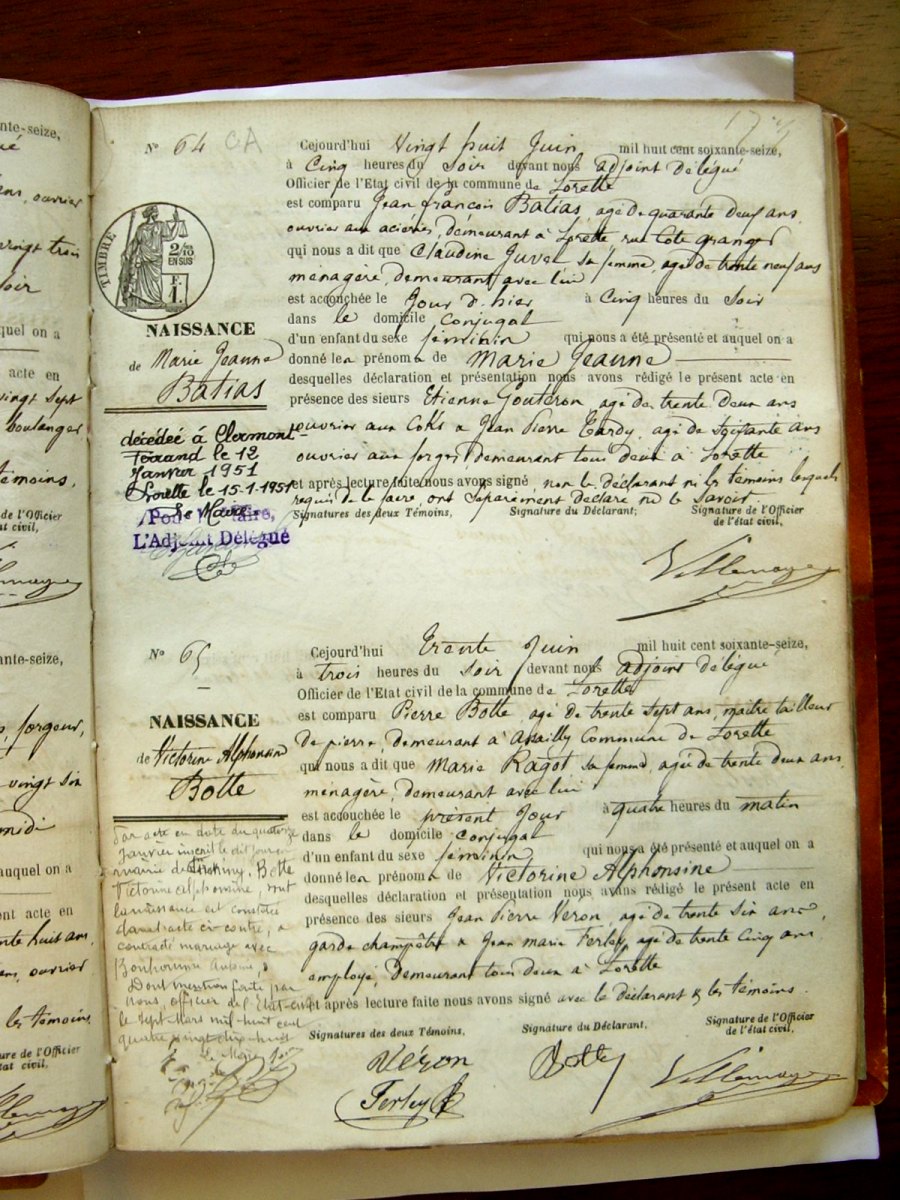 nte-seize,
ens, ouvrier
vingt trois
soir
auquel on a
acte en
vingt sept
boulanger
témoins,
de l'Officier
at civil,
ante-seize,
forgeur,
vingt six
midi
auquel on a
ent acte en
nte huit ans,
ouvrier
les témoins
ure de l'Officier
tat civil,
N° 64 CA
TIMBRE
2/10
EN SUS
F.
1.
NAISSANCE
de Marie Jeanne
Batias
décédée à Clermont-
Ferrand le 12
Janvier 1951
Lorette le 15-1-1951
Le Maire
L'Adjoint Délégué
Cejourd'hui Vingt huit Juin mil huit cent soixante-seize,
à Cinq heures du Soir devant nous adjoint délégué
Officier de l'Etat civil de la commune de Lorette
est comparu Jean françois Batias, agé de quarante deux ans
ouvrier aux aciéries, demeurant à Lorette rue Côte granger
qui nous a dit que Claudine Juver sa femme, agée de trente neuf ans
ménagère, demeurant avec lui
est accouchée le Jour d'hier à Cinq heures du Soir
dans le domicile conjugal
d'un enfant du sexe féminin qui nous a été présenté et auquel on a
donné les prénoms de Marie Jeanne
desquelles déclaration et présentation nous avons rédigé le présent acte en
présence des sieurs Etienne Gouteron agé de trente deux ans
ouvrier aux Coks & Jean Pierre Tardy, agé de soixante ans
ouvrier aux forges, demeurant tous deux à Lorette
et après lecture faite nous avons signé non le déclarant ni les témoins lesquels
requis de le faire, ont séparément déclaré ne le savoir.
Signatures des deux Témoins, Signature du Déclarant, Signature de l'Officier
de l'état civil,
Villemagne
N° 65
NAISSANCE
de Victorine Alphonsine
Botte
Par acte en date du quatorze
Janvier inscrit le dit jour
mairie de Botte
Victorine Alphonsine, dont
la naissance est constatée
dans l'acte ci contre, a
contracté mariage avec
Bonhomme Antoine
Dont mention faite par
nous, officier de l'Etat-civil
le sept Mars mil huit cent
quatre vingt dix huit
Le Maire
Cejourd'hui Trente Juin mil huit cent soixante-seize,
à trois heures du soir devant nous adjoint délégué
Officier de l'Etat civil de la commune de Lorette
est comparu Pierre Botte, agé de trente sept ans, maitre tailleur
de pierre, demeurant à Assailly Commune de Lorette
qui nous a dit que Marie Ragot sa femme, agée de trente deux ans,
ménagère, demeurant avec lui
est accouchée le présent Jour à quatre heures du matin
dans le domicile conjugal
d'un enfant du sexe féminin qui nous a été présenté et auquel on a
donné les prénoms de Victorine Alphonsine
desquelles déclaration et présentation nous avons rédigé le présent acte en
présence des sieurs Jean Pierre Véron, agé de trente six ans,
garde champêtre & Jean marie Ferley, agé de trente cinq ans
employé, demeurant tous deux à Lorette
et après lecture faite nous avons signé avec le déclarant & les témoins.
Signatures des deux Témoins, Signature du Déclarant, Signature de l'Officier
de l'état civil,
Véron Botte Villemagne
Ferley